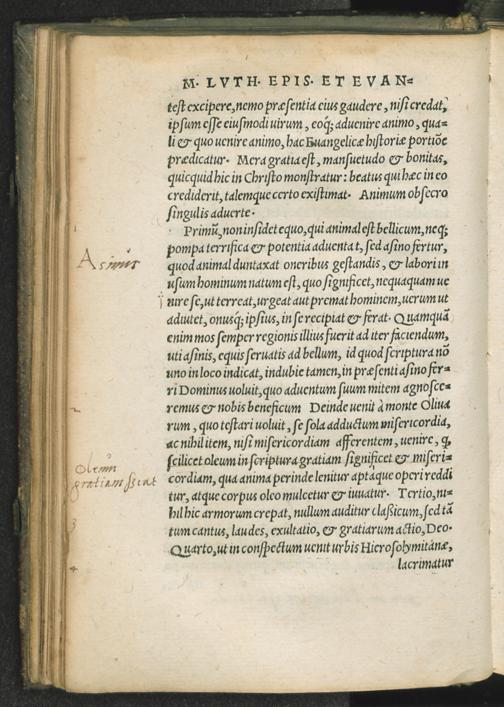 M. LVTH. EPIS. ET EVAN=
test excipere, nemo præsentia eius gaudere, nisi credat,
ipsum esse eiusmodi uirum, eoq́; aduenire animo, qua=
li & quo uenire animo, hac Euangelicæ historiæ portiõe
prædicatur. Mera gratia est, mansuetudo & bonitas,
quicquid hic in Christo monstratur: beatus qui hæc in eo
crediderit, talemque certo existimat. Animum obsecro
singulis aduerte.
Primũ, non insidet equo, qui animal est bellicum, neq;
pompa terrifica & potentia aduentat, sed asino fertur,
Asinus
quod animal duntaxat oneribus gestandis, & labori in
usum hominum natum est, quo significet, nequaquam ue
nire se, ut terreat, urgeat aut premat hominem, uerum ut
adiutet, onusq́; ipsius, in se recipiat & ferat. Quamquã
enim mos semper regionis illius fuerit ad iter faciendum,
uti asinis, equis seruatis ad bellum, id quod scriptura nõ
uno in loco indicat, indubie tamen, in præsenti asino fer=
ri Dominus uoluit, quo aduentum suum mitem agnosce=
remus & nobis beneficum Deinde uenit à monte Oliua
2
rum, quo testari uoluit, se sola adductum misericordia,
ac nihil item, nisi misericordiam afferentem, uenire, q,
scilicet oleum in scriptura gratiam significet & miseri=
Oleum
gratiam
cordiam, qua anima perinde lenitur aptáque operi reddi
tur, atque corpus oleo mulcetur & iuuatur. Tertio, ni=
hil hic armorum crepat, nullum auditur classicum, sed tã
3
tum cantus, laudes, exultatio, & gratiarum actio, Deo.
Quarto, ut in conspectum uenit urbis Hierosolymitanæ,
4
lacrimatur